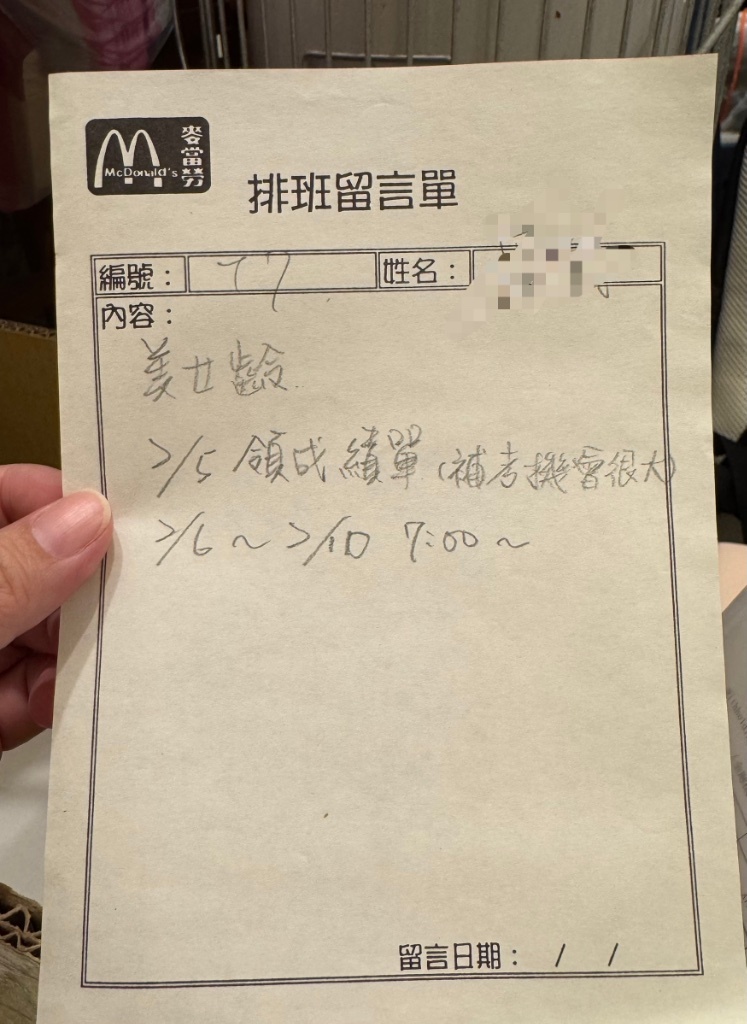 McDonald's 麥當勞
排班留言單
編號： 77 姓名：
內容：
美女齡
2/5 領成績單 (補考機會很大)
2/6～2/10 7:00～
留言日期： / /